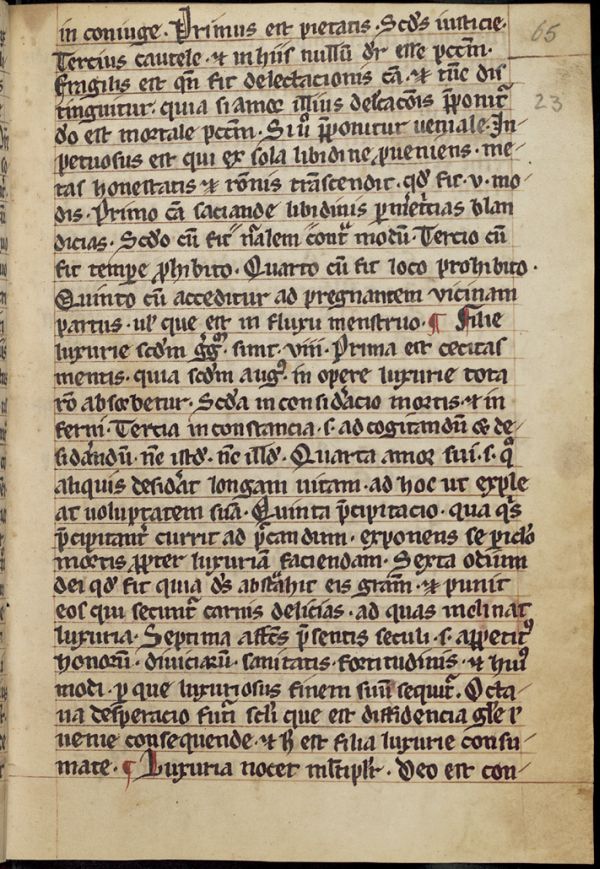 65
23
in coniuge. Primus est pietatis. Scd̄s iusticie.
Tercius cautele. ⁊ in hiis nullū dr̄ esse pcc̄m.
Fragilis est qn̄ fit delectacionis cā. ⁊ tūc dis
tinguitur. quia si amor illius delc̄acōis p̄ponit̄
dō est mortale pcc̄m. Si ū p̄ponitur ueniale. In-
petuosus est qui ex sola libidine ꝓueniens. me-
tas honestatis ⁊ rōnis trāscendit. qd̄ fit .v. mo-
dis. Primo cā saciande libidinis ꝑ mer̄t̄cias blan
dicias. Scd̄o cū fit nālem cont̄ modū. Tercio cū
fit tempore ꝓhibito. Quarto cū fit loco prohibito.
Quinto cū acceditur ad pregnantem vicinam
partus. ul̄ que est in fluxu menstruo. ¶ Filie
luxurie scd̄m gḡ. sunt .viii. Prima est cecitas
mentis. quia scd̄m augꝰ. in opere luxurie tota
rō absorbetur. Scd̄a inconsid̄acio mortis. ⁊ in
ferni. Tercia inconstancia .s. ad cogitandū ⁊ de-
sid̄andū. nc̄ istd̄. nc̄ illd̄. Quarta amor sui .s. q̄
aliquis desid̄at longam uitam. ad hoc ut exple
at voluptatem suā. Quinta p̄cipitacio. qua qͥs
p̄cipitant̄ currit ad p̄candum. exponens se piclō
mortis ꝓpter luxuriā faciendam. Sexta odium
dei qd̄ fit quia d̄s abst̄ahit eis grām. ⁊ punit
eos qui secunt̄ carnis delicias. ad quas inclinat
luxuria. Septima affc̄s p̄sentis seculi .s. appetitꝰ
honorū. diuiciarū. sanitatis. fortitudinis. ⁊ huiꝰ
modi. ꝑ que luxuriosus finem suū sequit̄. Octa-
ua desperacio futi scl̄i que est diffidencia gl̄e ł
uenie consequende. ⁊ h̄ est filia luxurie consu-
mate. ¶ Luxuria nocet ml̄tiplr̄. Deo est con-